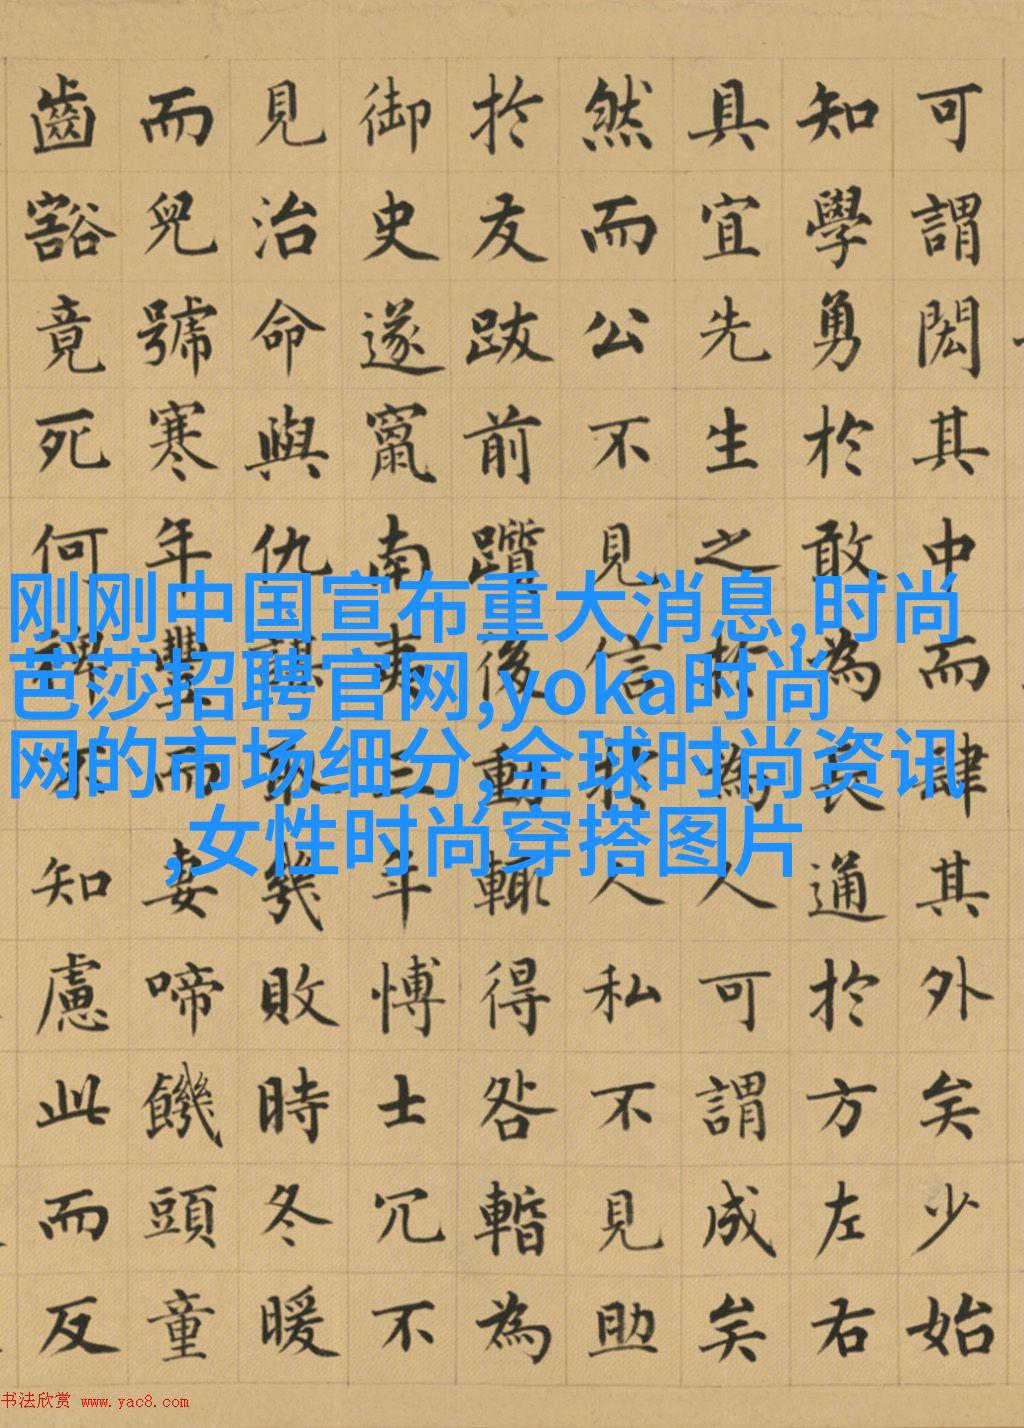 可謂閎其中而肆其外矣少始
知學勇於敢為長通於方左右
具宜先生之於為人可謂成矣
然而公不見信於人私不見助
於友跋前躓後動輒得咎暫為
御史遂竄南夷三年愽士冗不
見治命與仇謀取幾敗時冬暖
而兒號寒年豐而妻啼饑頭童
齒豁竟死何裨不知慮此而反
刚刚中国宣布重大消息,时尚
芭莎招聘官网,yoka时尚
网的市场细分,全球时尚资讯
,女性时尚穿搭图片
书法欣赏 www.yac8.com